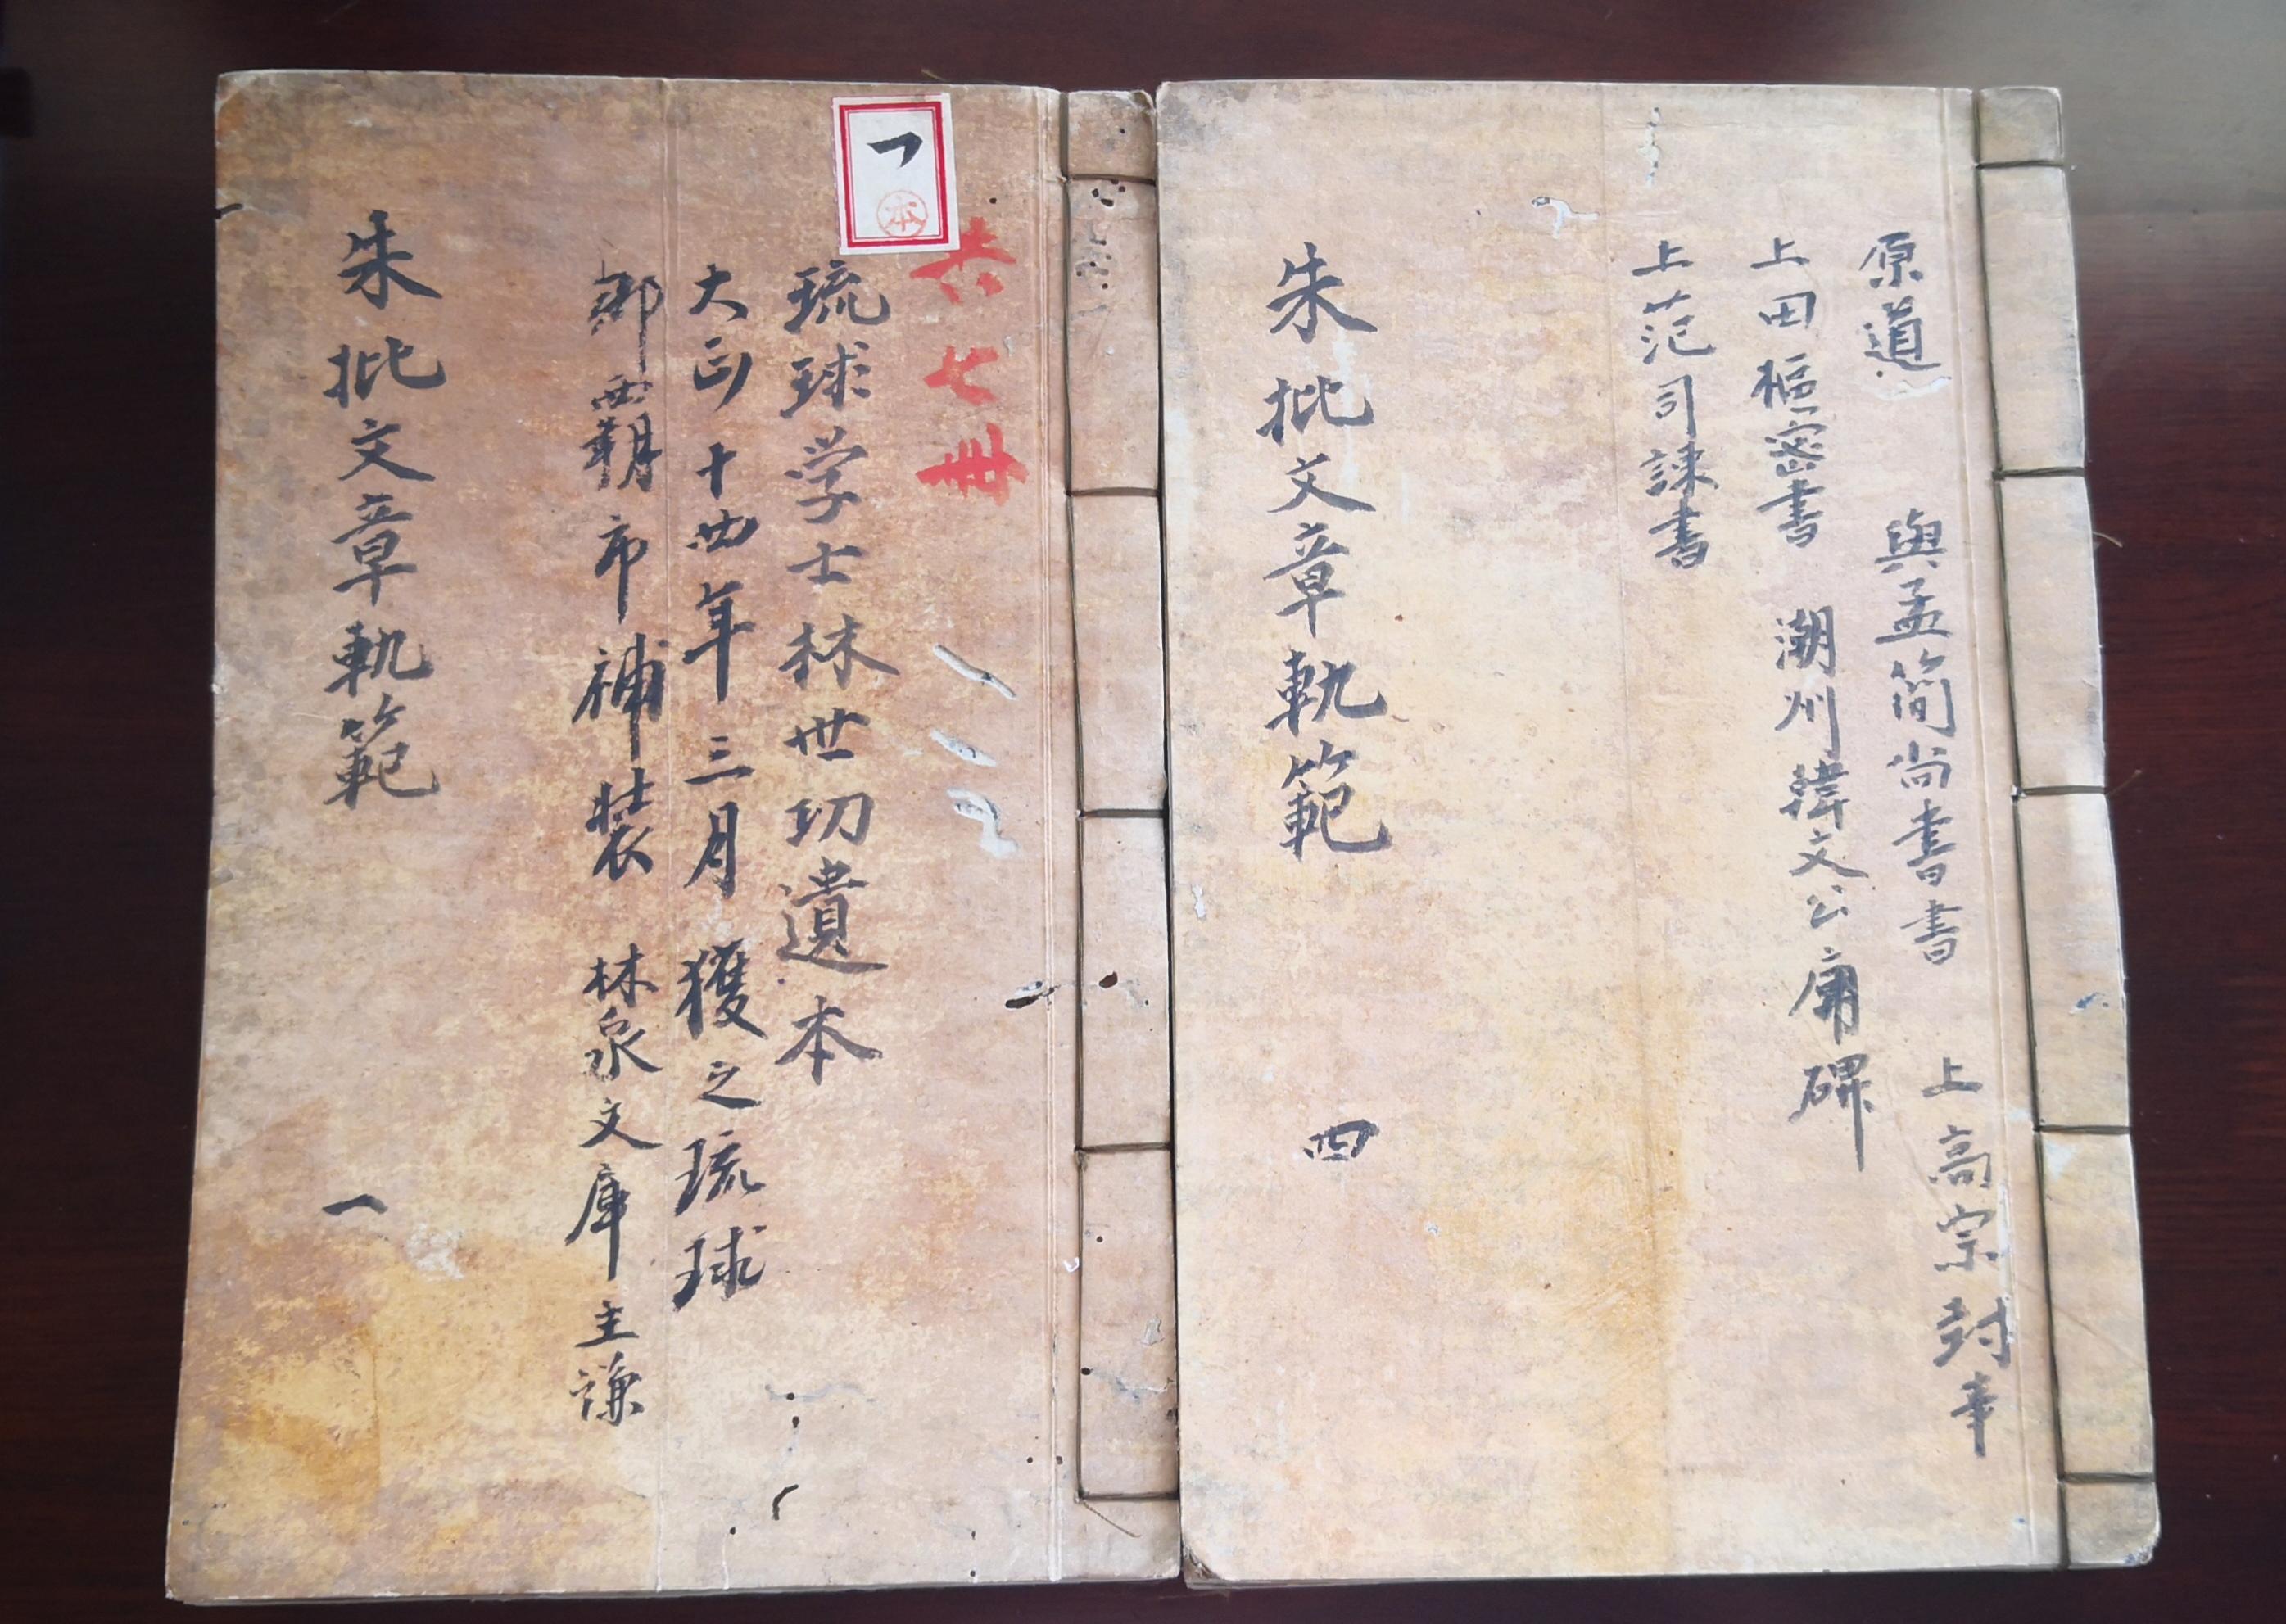 原道 與孟簡尚書書 上高宗封事
上田樞密書 潮州韓文公廟碑
上范司諫書
朱批文章軌範 四
一
本
共七冊
琉球学士林世功遺本
大正十四年三月獲之琉球
那覇市補装 林泉文庫主謙
朱批文章軌範 一